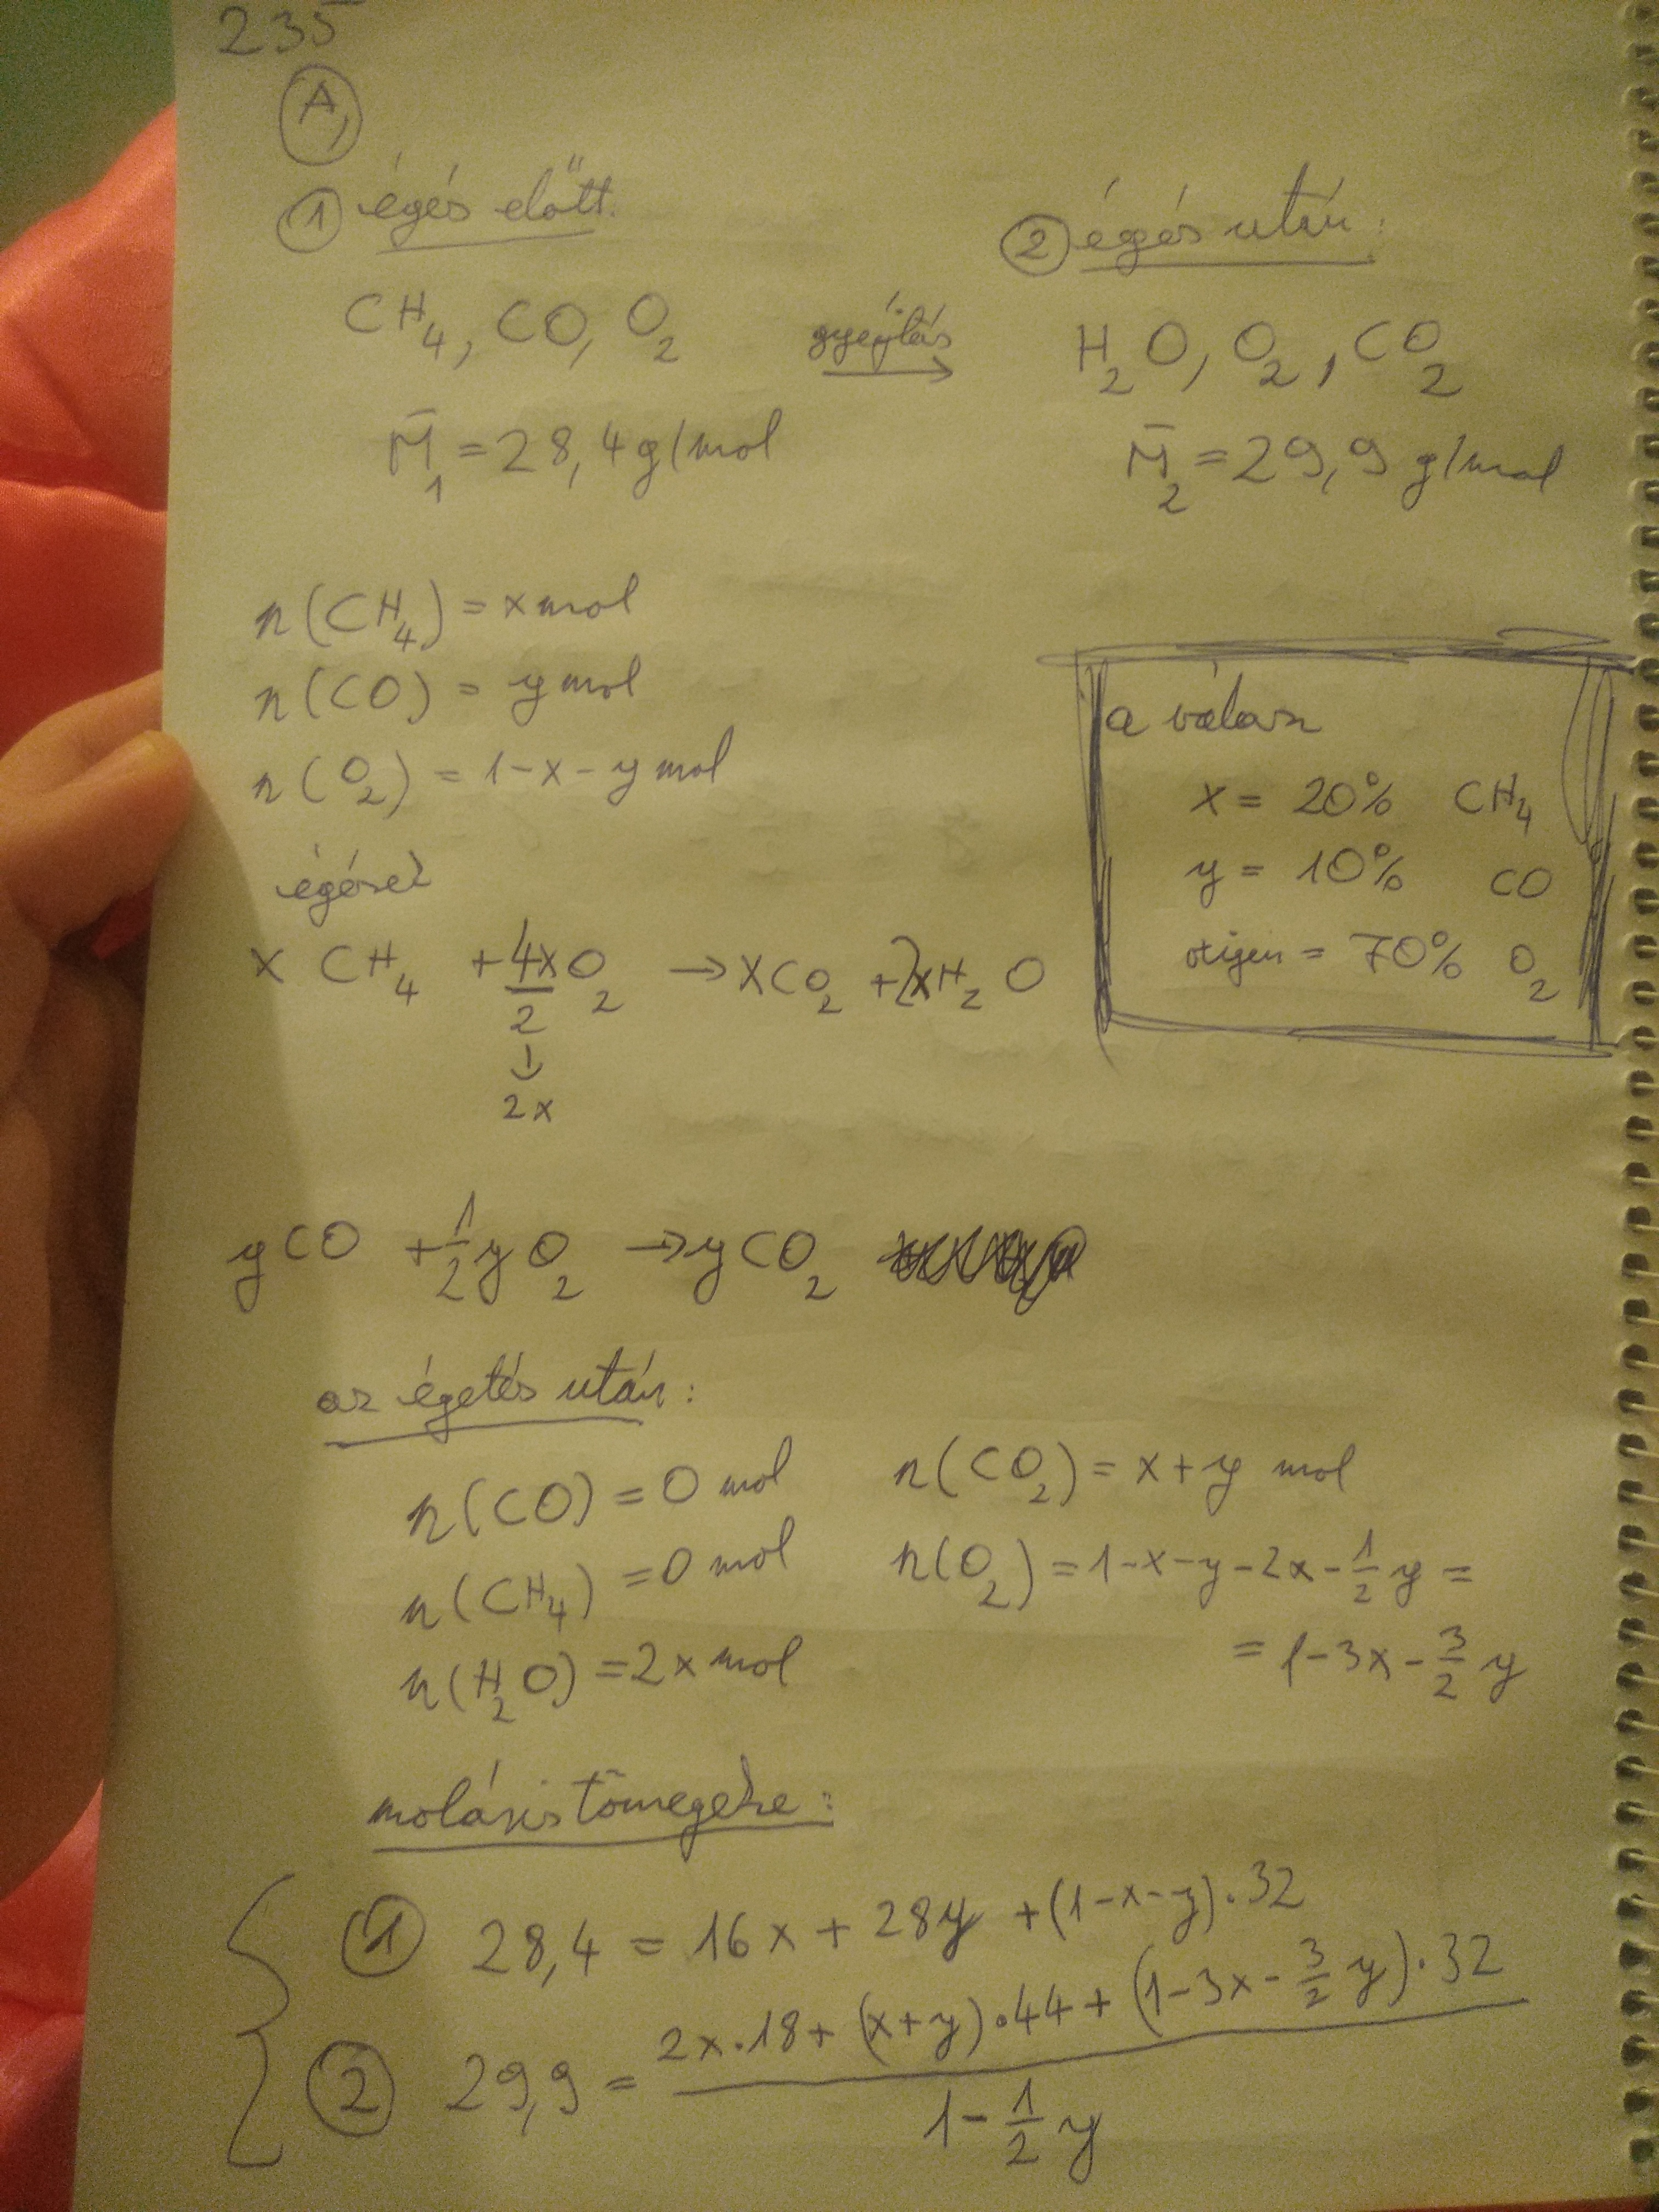 235
A,
① égés előtt.
CH₄, CO, O₂
M̄₁ = 28,4 g/mol
gyújtás →
② égés után:
H₂O, O₂, CO₂
M̄₂ = 29,9 g/mol
n(CH₄) = x mol
n(CO) = y mol
n(O₂) = 1-x-y mol
a válasz
x = 20% CH₄
y = 10% CO
oxigén = 70% O₂
égések
x CH₄ + 4x/2 O₂ → x CO₂ + 2x H₂O
↓
2x
y CO + 1/2 y O₂ → y CO₂
az égetés után:
n(CO) = 0 mol
n(CH₄) = 0 mol
n(H₂O) = 2x mol
n(CO₂) = x+y mol
n(O₂) = 1-x-y-2x-1/2 y =
= 1-3x-3/2 y
moláris tömegekre:
① 28,4 = 16x + 28y + (1-x-y)·32
② 29,9 = (2x·18 + (x+y)·44 + (1-3x-3/2 y)·32) / (1-1/2 y)